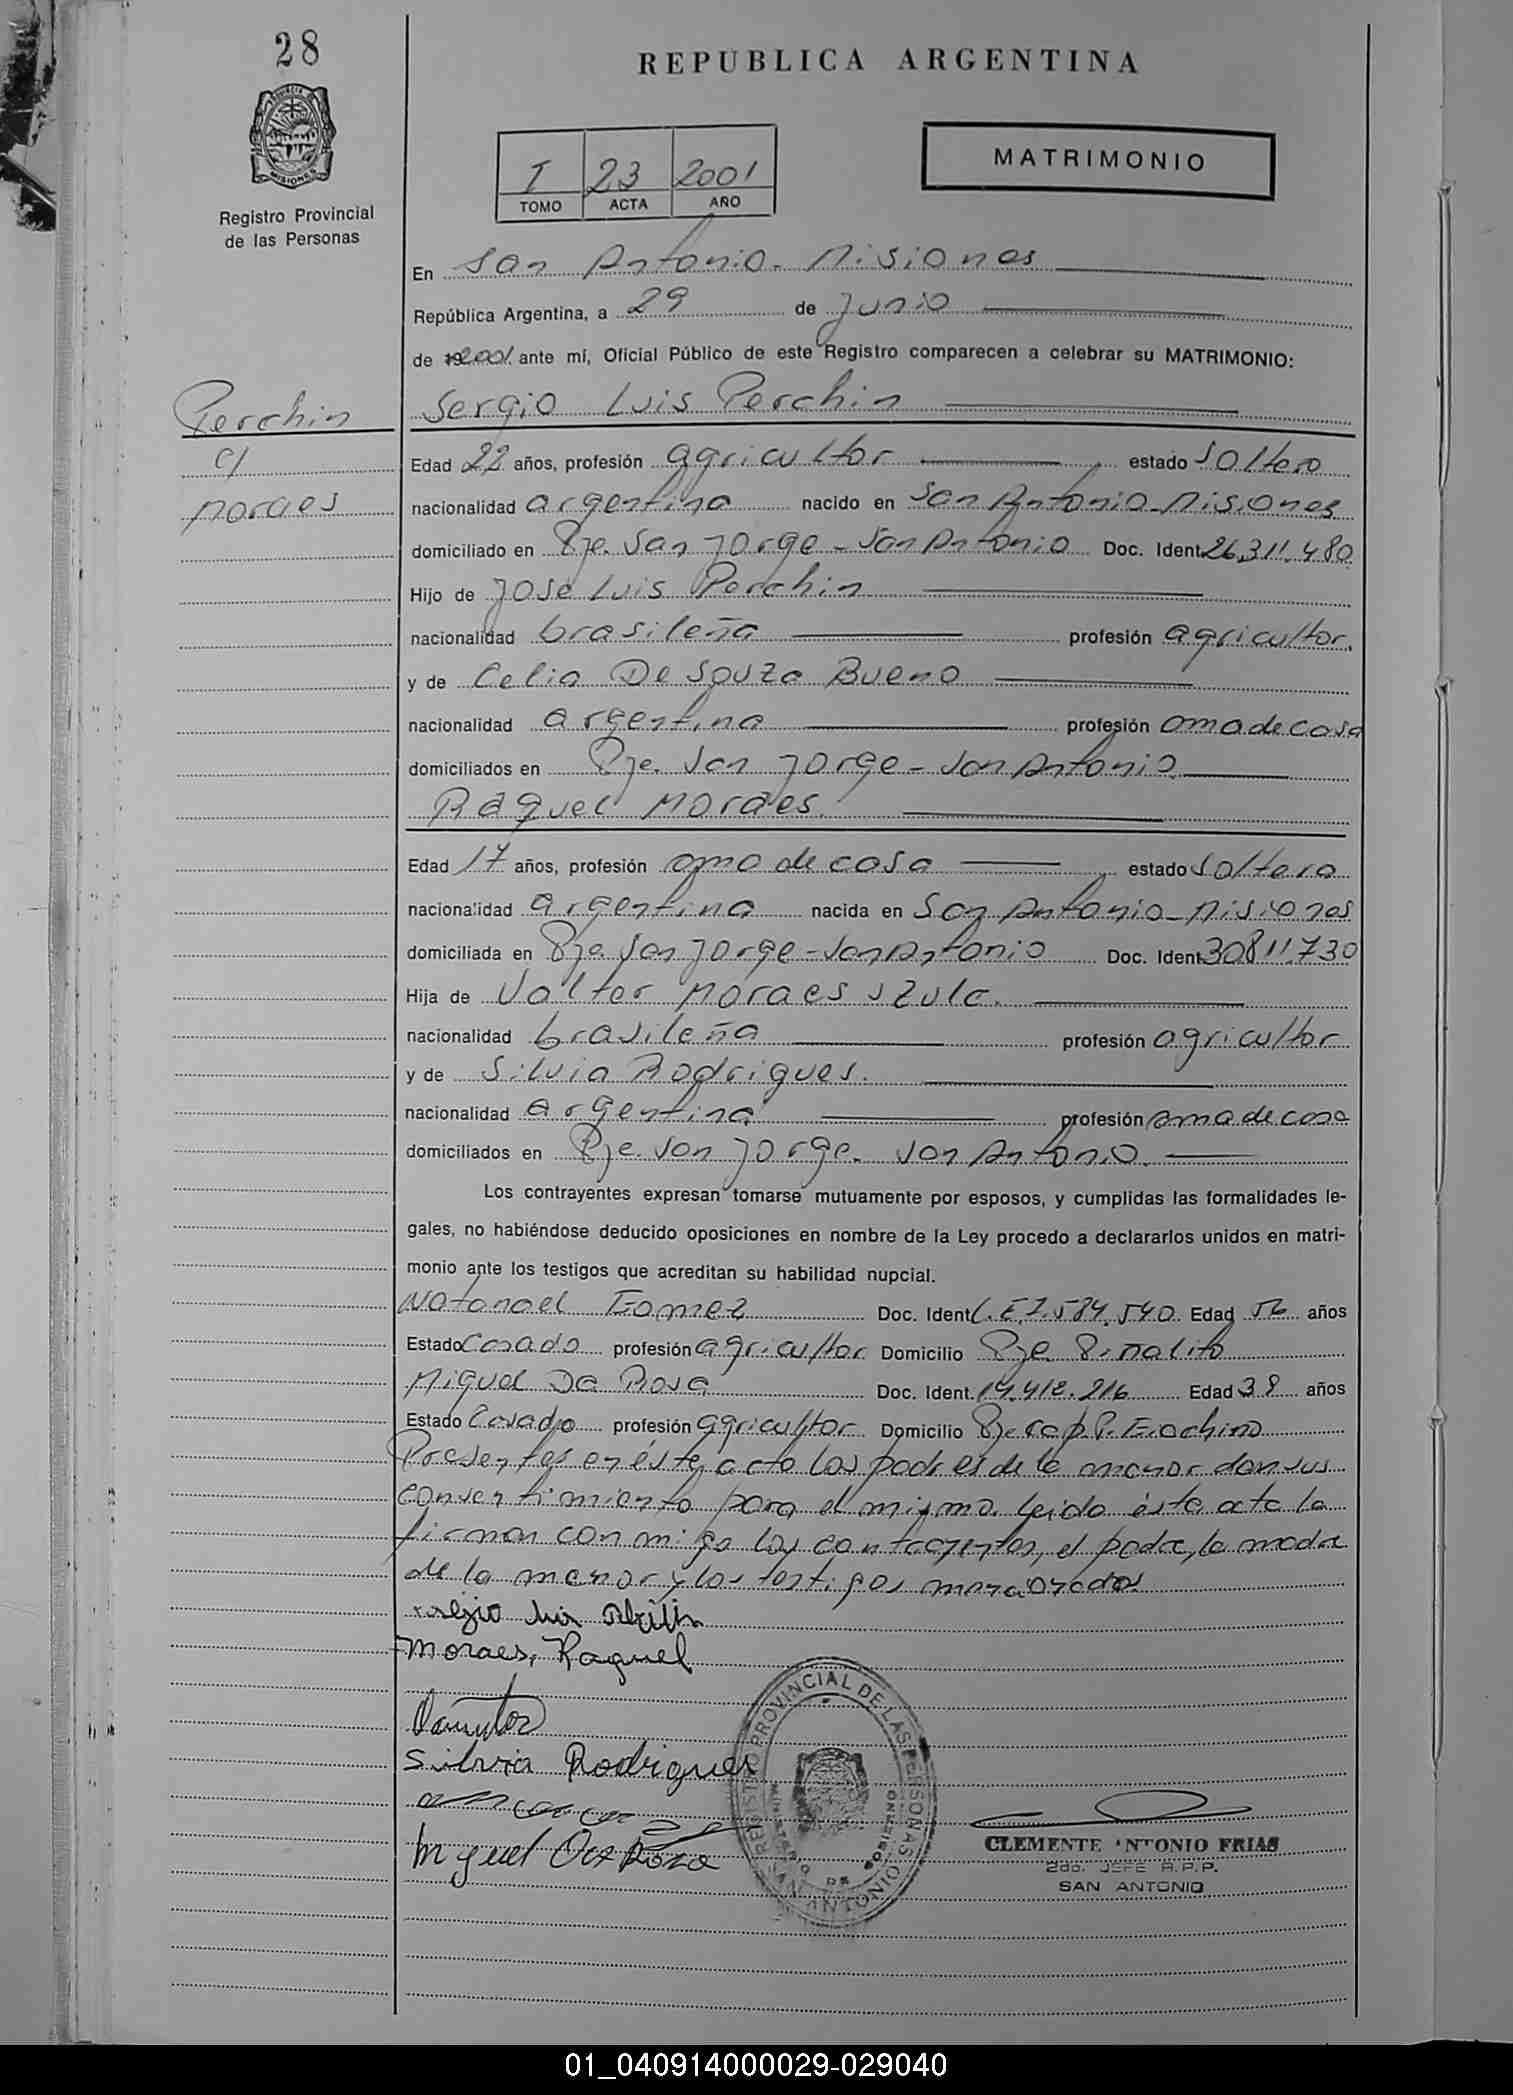 28
REPUBLICA ARGENTINA
PROVINCIA DE
MISIONES
Registro Provincial
de las Personas
I 23 2001
TOMO ACTA AÑO
MATRIMONIO
En San Antonio - Misiones
República Argentina, a 29 de junio
de 2001 ante mí, Oficial Público de este Registro comparecen a celebrar su MATRIMONIO:
Perchin
c/
Moraes
Sergio Luis Perchin
Edad 22 años, profesión agricultor estado soltero
nacionalidad argentina nacido en San Antonio - Misiones
domiciliado en Pje. San Jorge - San Antonio Doc. Ident. 26.311.480
Hijo de Jose Luis Perchin
nacionalidad brasileña profesión agricultor.
y de Celia De Souza Bueno
nacionalidad argentina profesión ama de casa
domiciliados en Pje. San Jorge - San Antonio
Raquel Moraes.
Edad 17 años, profesión ama de casa estado soltera
nacionalidad argentina nacida en San Antonio - Misiones
domiciliada en Pje. San Jorge - San Antonio Doc. Ident. 30811.730
Hija de Valter Moraes
nacionalidad brasileña profesión agricultor
y de Silvia Rodrigues.
nacionalidad argentina profesión ama de casa
domiciliados en Pje. San Jorge. San Antonio.
Los contrayentes expresan tomarse mutuamente por esposos, y cumplidas las formalidades le-
gales, no habiéndose deducido oposiciones en nombre de la Ley procedo a declararlos unidos en matri-
monio ante los testigos que acreditan su habilidad nupcial.
Natanael Doc. Ident. L.E 7.584.540 Edad 56 años
Estado Casado profesión agricultor Domicilio Pje. Piñalito
Miguel Da Rosa Doc. Ident. 14.412.216 Edad 38 años
Estado Casado profesión agricultor Domicilio Pje.
Presentes en éste acto los padres de la menor dan sus
consentimiento para el mismo. Leida ésta acta la
firman conmigo los contrayentes, el padre, la madre
de la menor y los testigos mencionados
Moraes, Raquel
Silvia Rodrigues
Miguel Da Rosa
REGISTRO PROVINCIAL DE LAS PERSONAS
SAN ANTONIO
CLEMENTE ANTONIO FRIAS
2do. JEFE R.P.P.
SAN ANTONIO
01_040914000029-029040